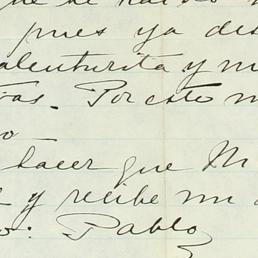 pues ya des
alenturita y m
as. Por esto m
o
hacer que M
y recibe mi
o: Pablo